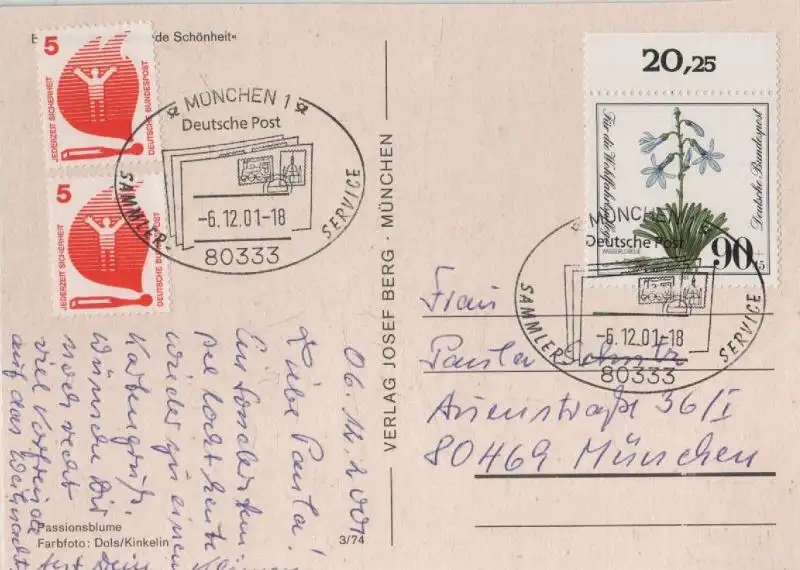 de Schönheit«
5
JEDERZEIT SICHERHEIT
DEUTSCHE BUNDESPOST
5
JEDERZEIT SICHERHEIT
DEUTSCHE BUNDESPOST
MÜNCHEN 1
Deutsche Post
SAMMLER-SERVICE
-6.12.01-18
80333
20,25
Für die Wohlfahrtspflege
Deutsche Bundespost
WASSERLOBELIE
90
MÜNCHEN
Deutsche Post
SAMMLER-SERVICE
-6.12.01-18
80333
VERLAG JOSEF BERG · MÜNCHEN
06. 12. 2001
Liebe Paula!
Ein Sonderstem
pel lockt heute
wieder zu einem
Kartengruß.
Wünsche Dir
noch recht
viel Vorfreude
auf das Weihnacht
fest Dein
Frau
Paula Schmitz
Auenstraße 36/I
80469 München
Passionsblume
Farbfoto: Dols/Kinkelin
3/74